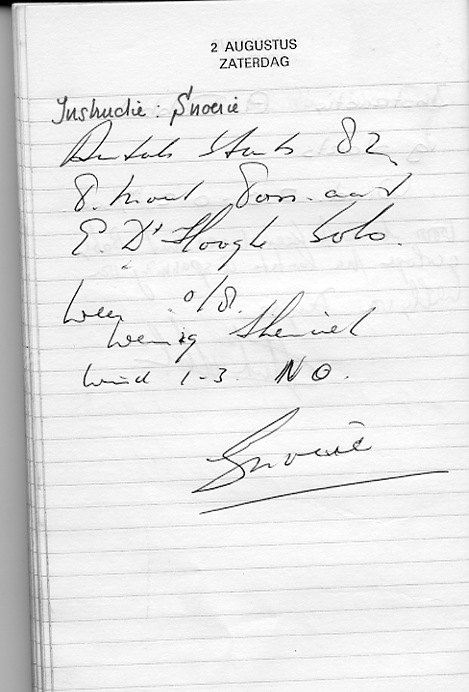 2 AUGUSTUS
ZATERDAG
Instructie: Snoerie
Aantal Starts 82
E. D'Hooghe Solo.
weer 0/8.
weinig thermiek
wind 1-3. NO.
Snoerie